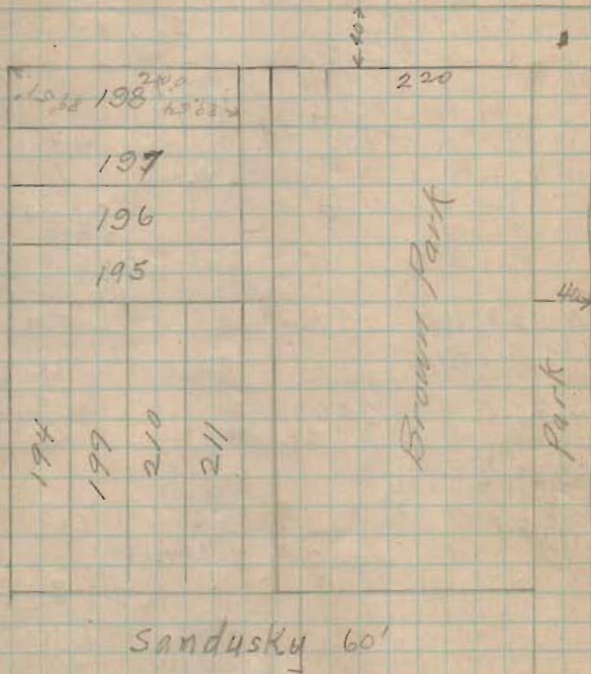 40
220
198
200.0
197
196
195
194
199
210
211
Brown Park
40
Park
Sandusky 60'